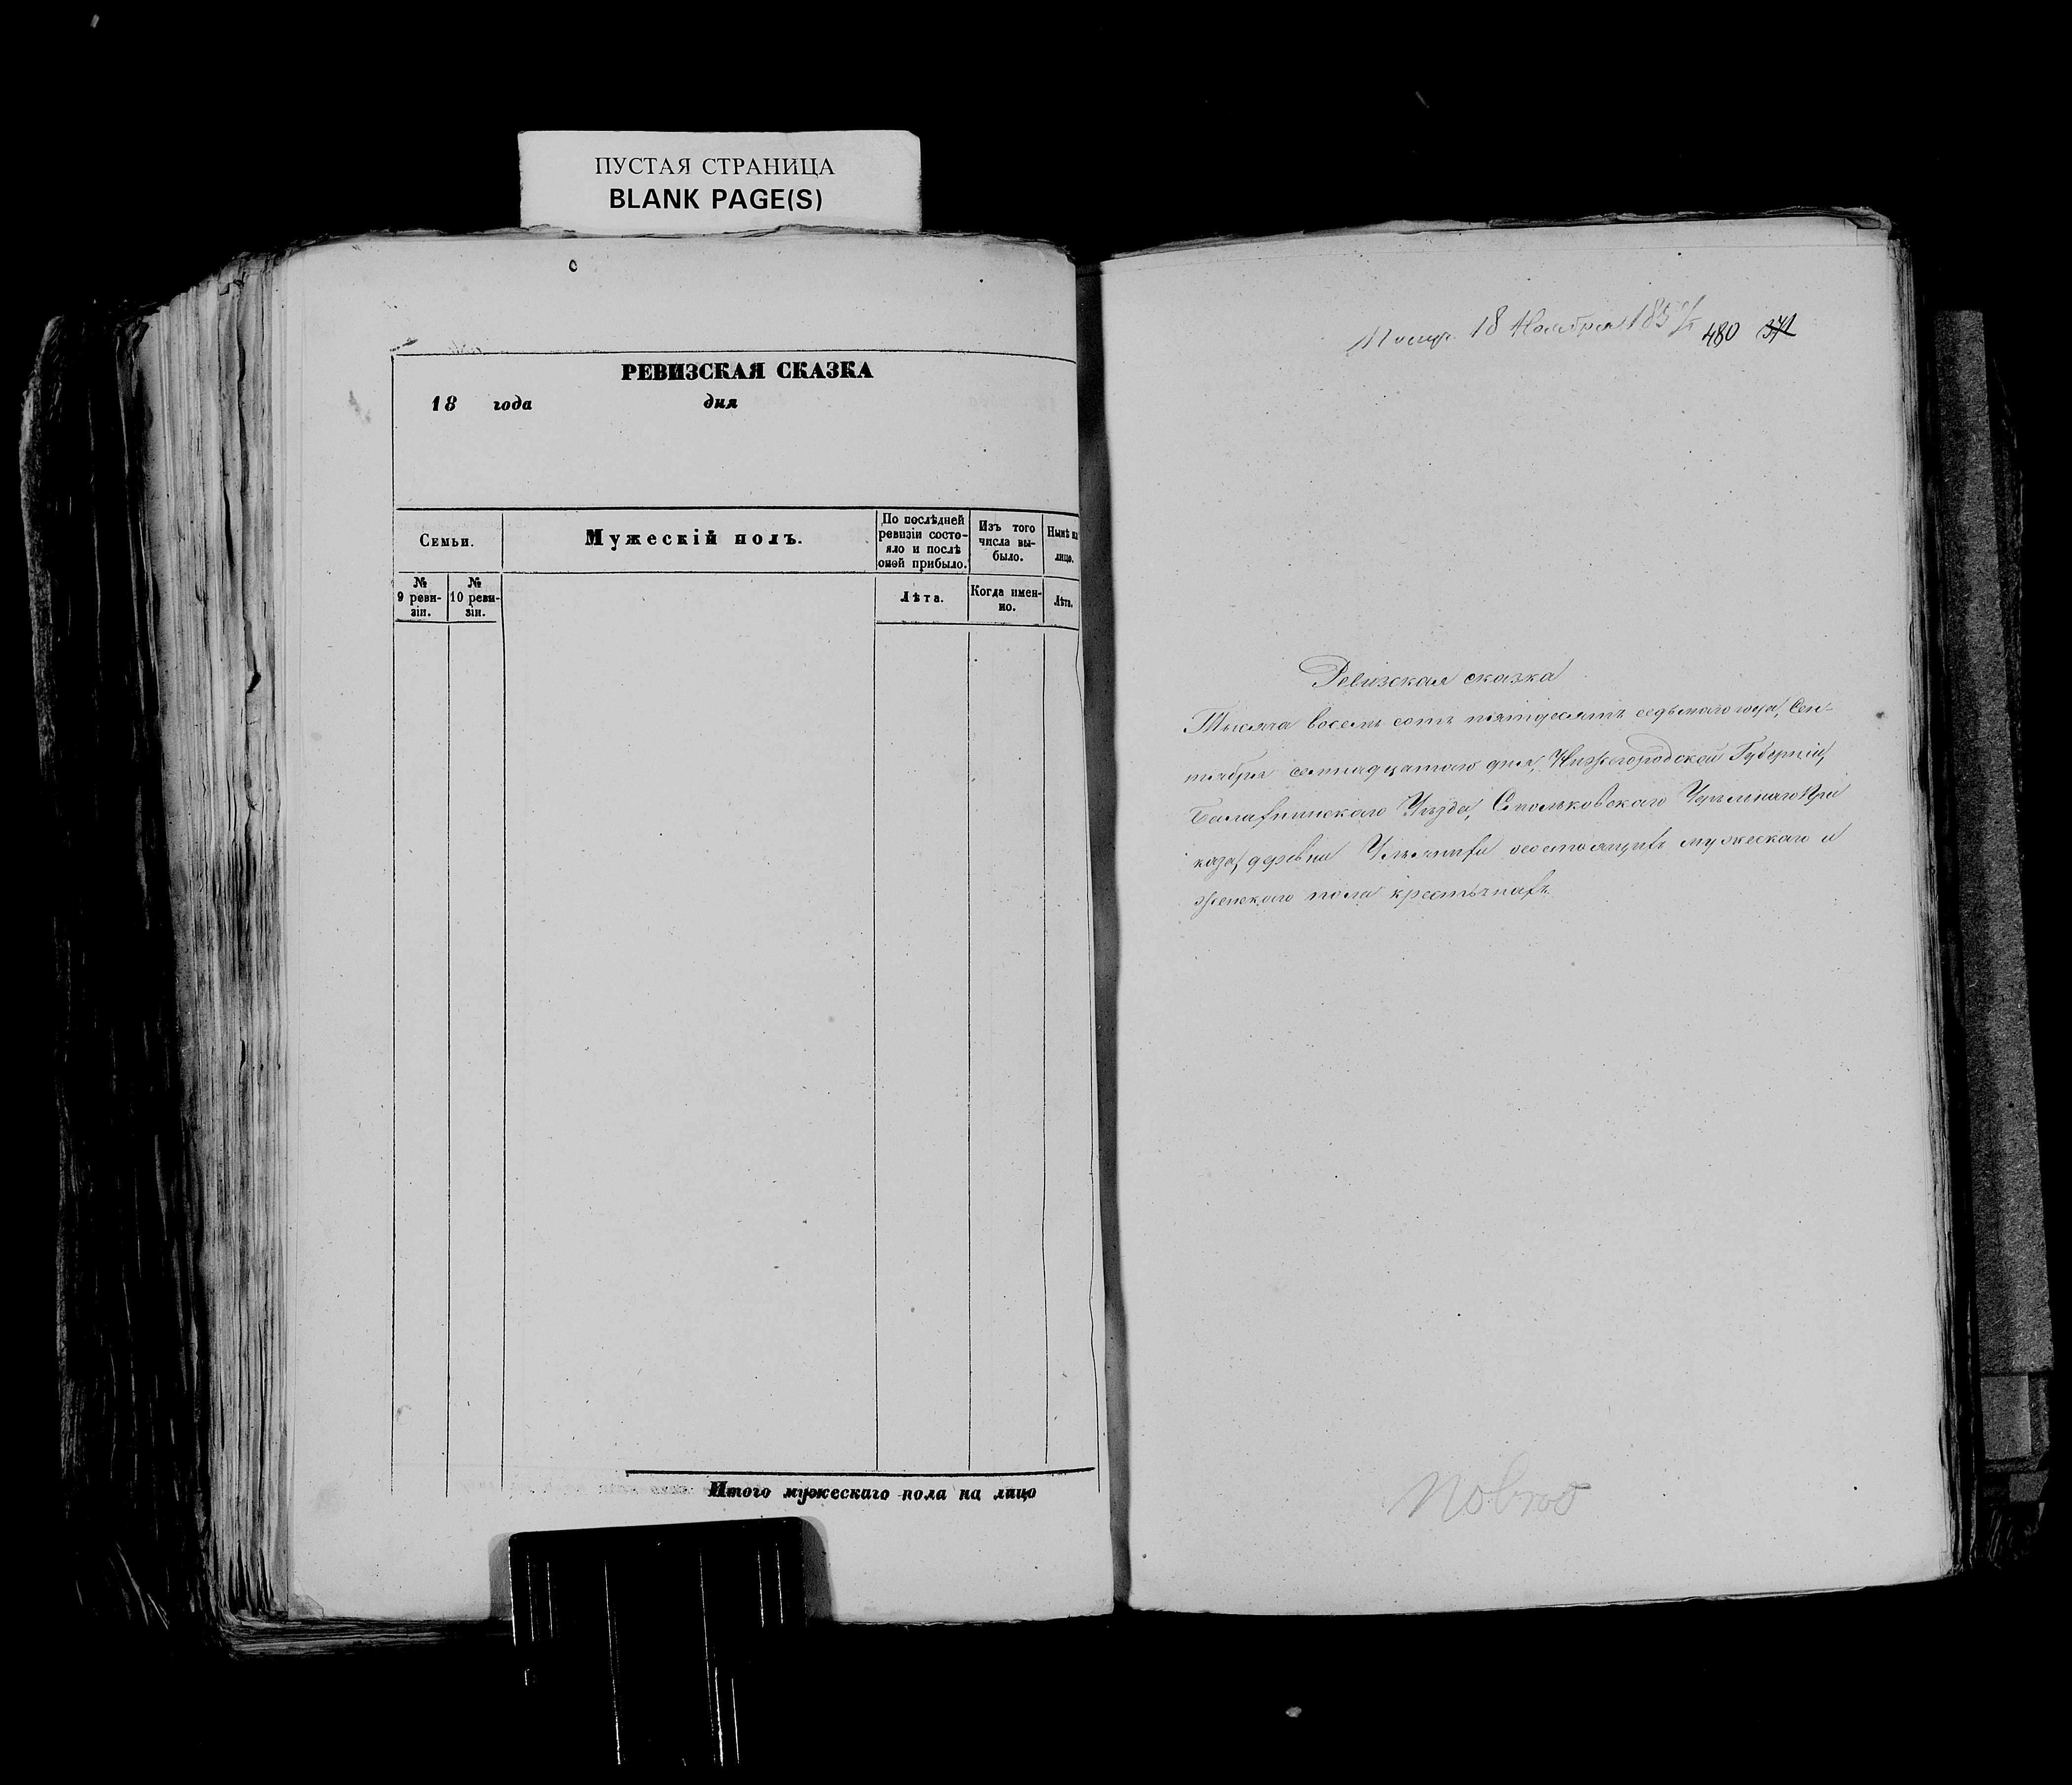 ПУСТАЯ СТРАНИЦА
BLANK PAGE(S)
РЕВИЗСКАЯ СКАЗКА
18 года дня
Семьи.
Мужескій полъ.
По послѣдней
ревизіи состо-
яло и послѣ
оной прибыло.
Изъ того
числа вы-
было.
Нынѣ на
лицо.
№
9 реви-
зіи.
№
10 реви-
зіи.
Лѣта.
Когда имен-
но.
Лѣта.
Итого мужескаго пола на лицо
18 Ноября 1857
480 371
Ревизская сказка
Тысяча восемь сотъ пятьдесятъ седьмаго года, Сен-
тября семнадцатаго дня, Нижегородской Губерніи,
Балахнинскаго Уѣзда, Смольковскаго Удѣльнаго При
каза, деревни состоящихъ мужескаго и
женскаго пола крестьянахъ